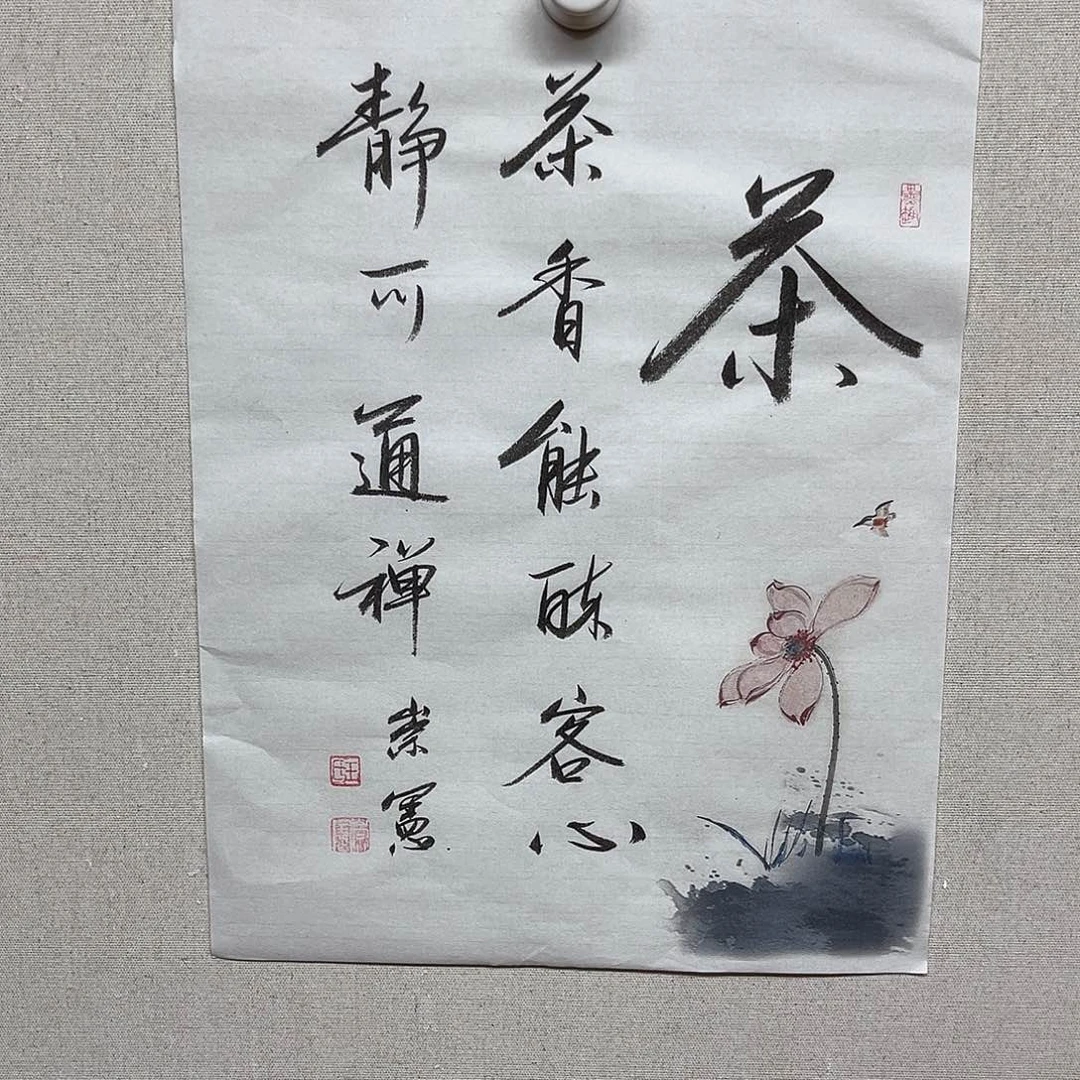 茶
茶香能醉客心
静可通禅
崇憲